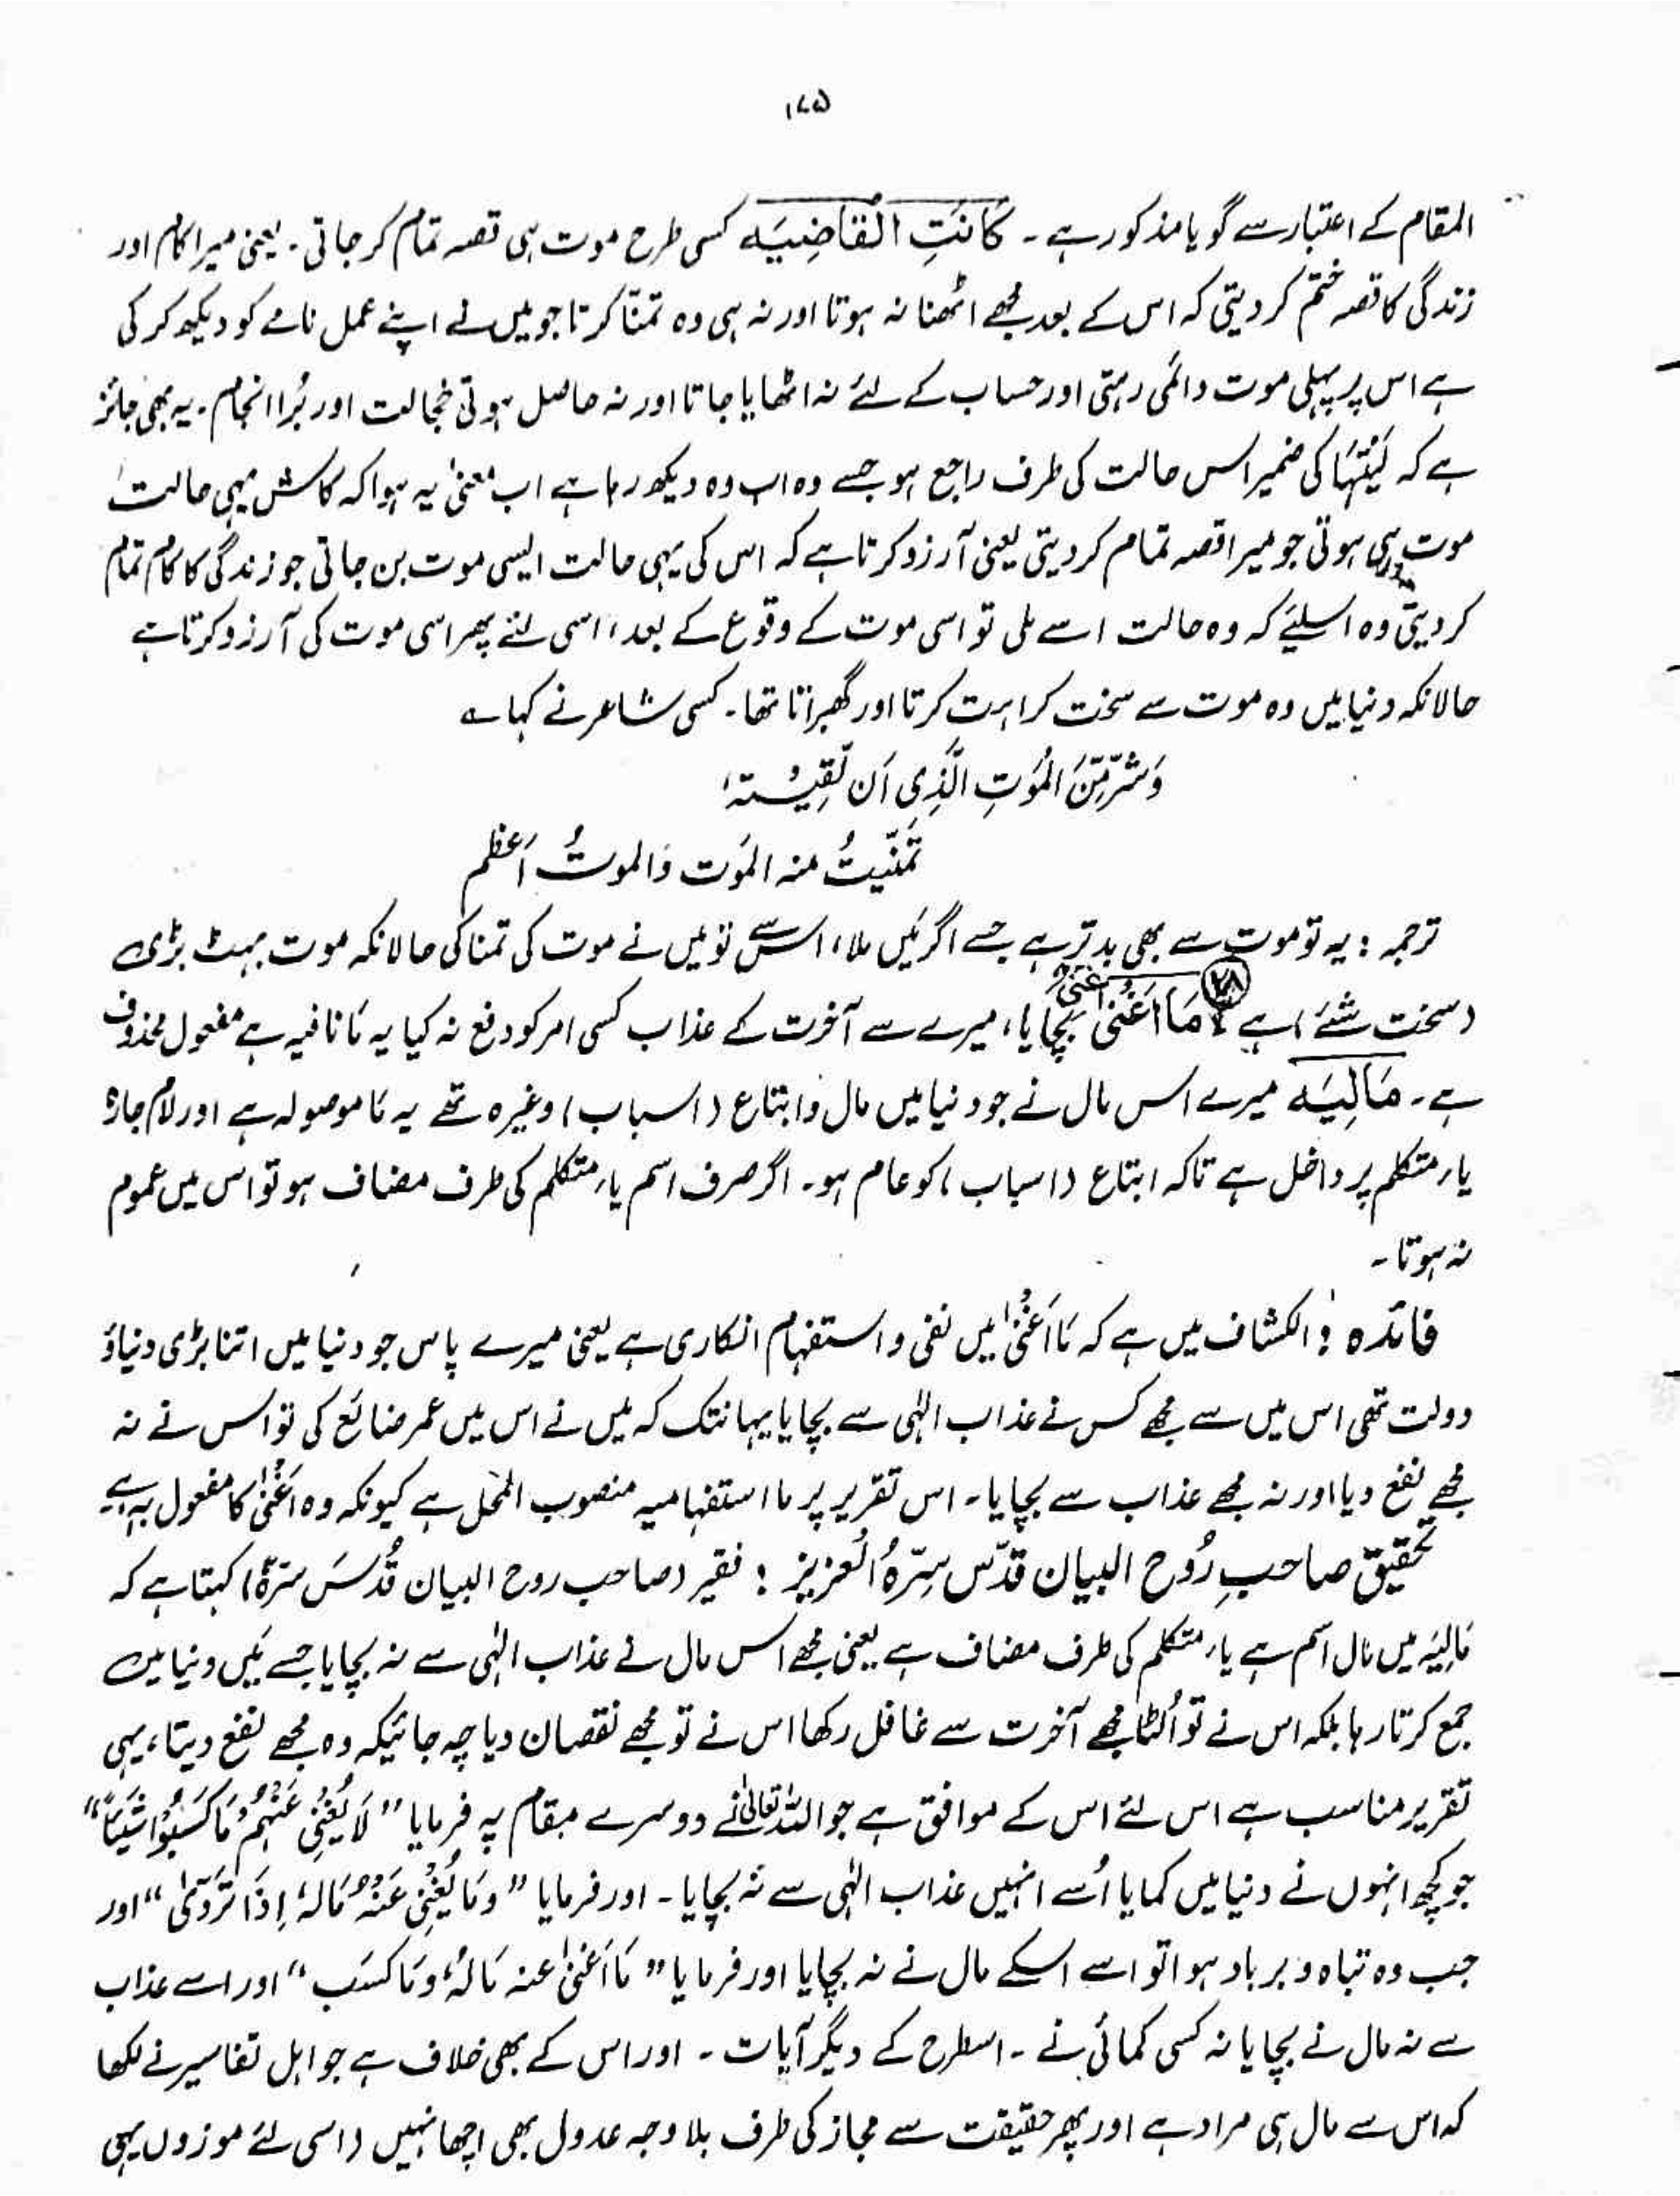 ۱۷۵
المقام کے اعتبار سے گویا مذکور ہے ۔ کَانَتِ الْقَاضِیَہ کسی طرح موت ہی قصہ تمام کر جاتی ۔ یعنی میرا کام اور
زندگی کا قصہ ختم کر دیتی کہ اس کے بعد مجھے اٹھنا نہ ہوتا اور نہ ہی وہ تمنّا کرتا جو میں نے اپنے عمل نامے کو دیکھ کر کی
ہے اس پر پہلی موت دائمی رہتی اور حساب کے لئے نہ اٹھایا جاتا اور نہ حاصل ہوتی خجالت اور بُرا انجام ۔ یہ بھی جائز
ہے کہ لَیْتَہَا کی ضمیر اس حالت کی طرف راجع ہو جسے وہ اب وہ دیکھ رہا ہے اب معنیٰ یہ ہوا کہ کاش یہی حالت
موت ہی ہوتی جو میرا قصہ تمام کر دیتی یعنی آرزو کرتا ہے کہ اس کی یہی حالت ایسی موت بن جاتی جو زندگی کا کام تمام
کر دیتی وہ اسلیئے کہ وہ حالت اسے ملی تو اسی موت کے وقوع کے بعد ، اسی لئے پھر اسی موت کی آرزو کرتا ہے
حالانکہ دنیا میں وہ موت سے سخت کراہت کرتا اور گھبراتا تھا ۔ کسی شاعر نے کہا ؎
وَشَرٌّ مِّنَ الْمَوتِ الَّذِی اَن لَّقِیْتہٗ
تَمَنَّیتُ منہ المَوت وَالموتُ اَعظم
ترجمہ : یہ تو موت سے بھی بدتر ہے جسے اگر مَیں ملا ، اس سے تو میں نے موت کی تمنا کی حالانکہ موت بہت بڑی
( سخت شئے ) ہے ۲۸ مَا اَغْنٰی عَنِّیْ بچایا ، میرے سے آخرت کے عذاب کسی امر کو دفع نہ کیا یہ مَا نافیہ ہے مفعول محذوف
ہے ۔ مَالِیَہ میرے اس مال نے جو دنیا میں مال و ابتاع ( اسباب ) وغیرہ تھے یہ مَا موصولہ ہے اور لام جارّہ
یاء متکلم پر داخل ہے تاکہ ابتاع ( اسباب ) کو عام ہو ۔ اگر صرف اسم یاء متکلم کی طرف مضاف ہو تو اس میں عموم
نہ ہوتا ۔
فائدہ : الکشاف میں ہے کہ مَا اَغْنٰی میں نفی و استفہام انکاری ہے یعنی میرے پاس جو دنیا میں اتنا بڑی دنیاؤ
دولت تھی اس میں سے مجھے کس نے عذاب الٰہی سے بچایا یہانتک کہ میں نے اس میں عمر ضائع کی تو اس نے نہ
مجھے نفع دیا اور نہ مجھے عذاب سے بچایا ۔ اس تقریر پر ما استفہامیہ منصوب المحل ہے کیونکہ وہ اَغْنٰی کا مفعول بہٖ ہے
تحقیق صاحبِ رُوح البیان قدّس سِرّہُ الْعَزیز : فقیر ( صاحب روح البیان قُدّسَ سرّہٗ ) کہتا ہے کہ
مَالِیَہ میں مال اسم ہے یاء متکلم کی طرف مضاف ہے یعنی مجھے اس مال نے عذاب الٰہی سے نہ بچایا جسے مَیں دنیا میں
جمع کرتا رہا بلکہ اس نے تو اُلٹا مجھے آخرت سے غافل رکھا اس نے تو مجھے نقصان دیا چہ جائیکہ وہ مجھے نفع دیتا ، یہی
تقریر مناسب ہے اس لئے اس کے موافق ہے جو اللہ تعالیٰ نے دوسرے مقام پہ فرمایا ” لَا یُغْنِیْ عَنْہُمْ مَا کَسَبُوْا شَیْئًا “
جو کچھ انہوں نے دنیا میں کمایا اُسے انہیں عذاب الٰہی سے نہ بچایا ۔ اور فرمایا ” وَمَا یُغْنِیْ عَنْہُ مَالہٗ اِذَا تَرَدّیٰ “ اور
جب وہ تباہ و برباد ہوا تو اسے اسکے مال نے نہ بچایا اور فرمایا ” مَا اَغْنٰی عنہ مَالہٗ وَمَا کسَب “ اور اسے عذاب
سے نہ مال نے بچایا نہ کسی کمائی نے ۔ اسطرح کے دیگر آیات ۔ اور اس کے بھی خلاف ہے جو اہل تفاسیر نے لکھا
کہ اس سے مال ہی مراد ہے اور پھر حقیقت سے مجاز کی طرف بلا وجہ عدول بھی اچھا نہیں ( اسی لئے موزوں یہی